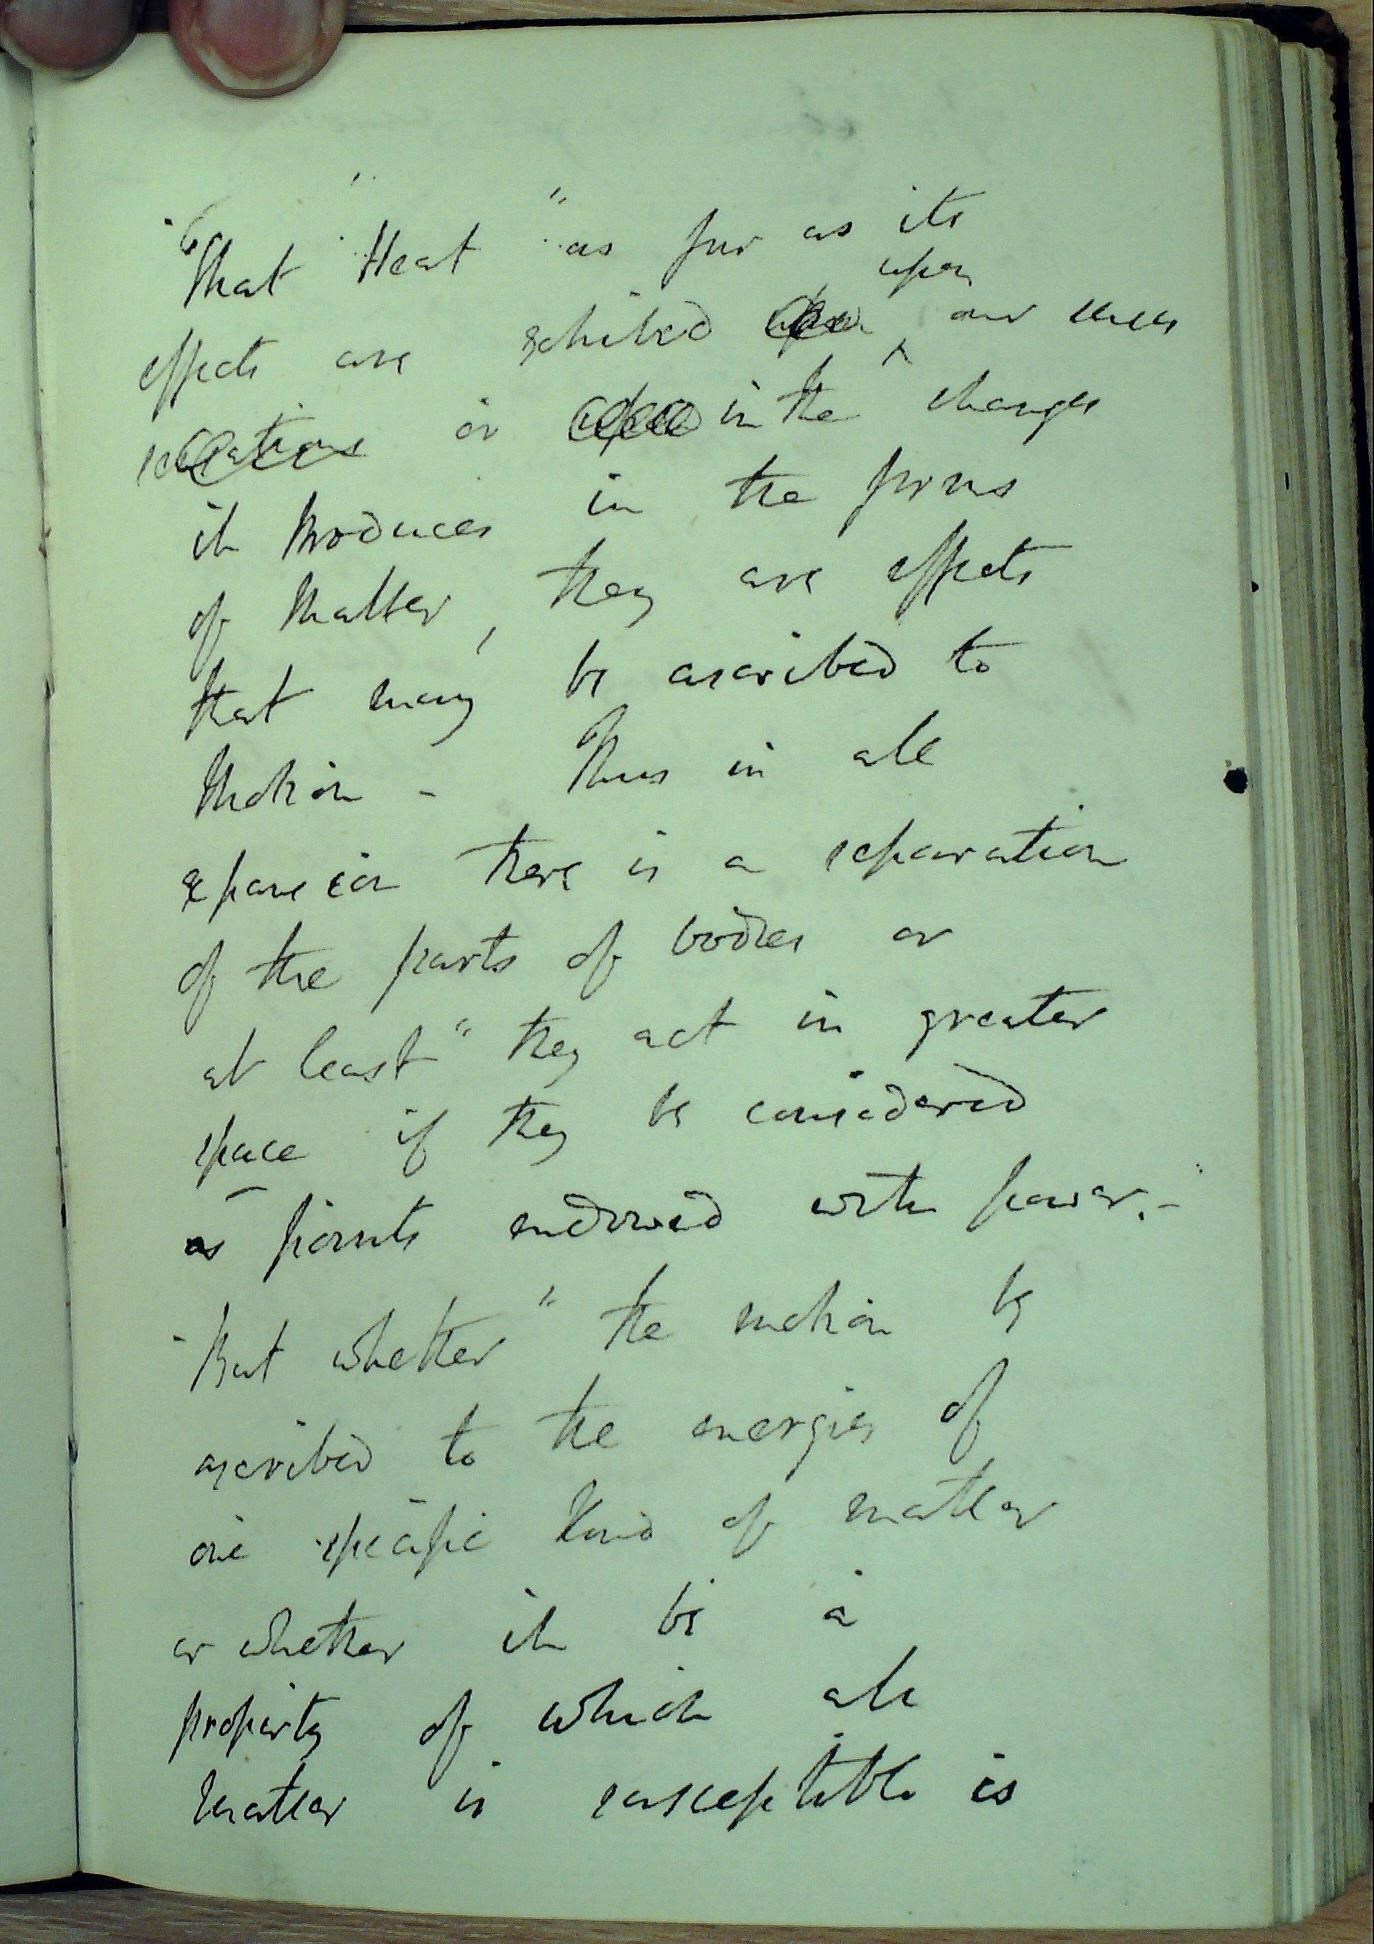 "That Heat" as far as its
effects are exhibited upon our senses
or in the changes
it produces in the forms
of Matter, they are effects
that may be ascribed to
Motion - Thus in all
expansion there is a separation
of the parts of bodies or
at least" they act in greater
space if they be considered
as points endowed with power. -
But whether" the motion be
ascribed to the energies of
one specific kind of matter
or whether it be a
property of which all
matter is susceptible is